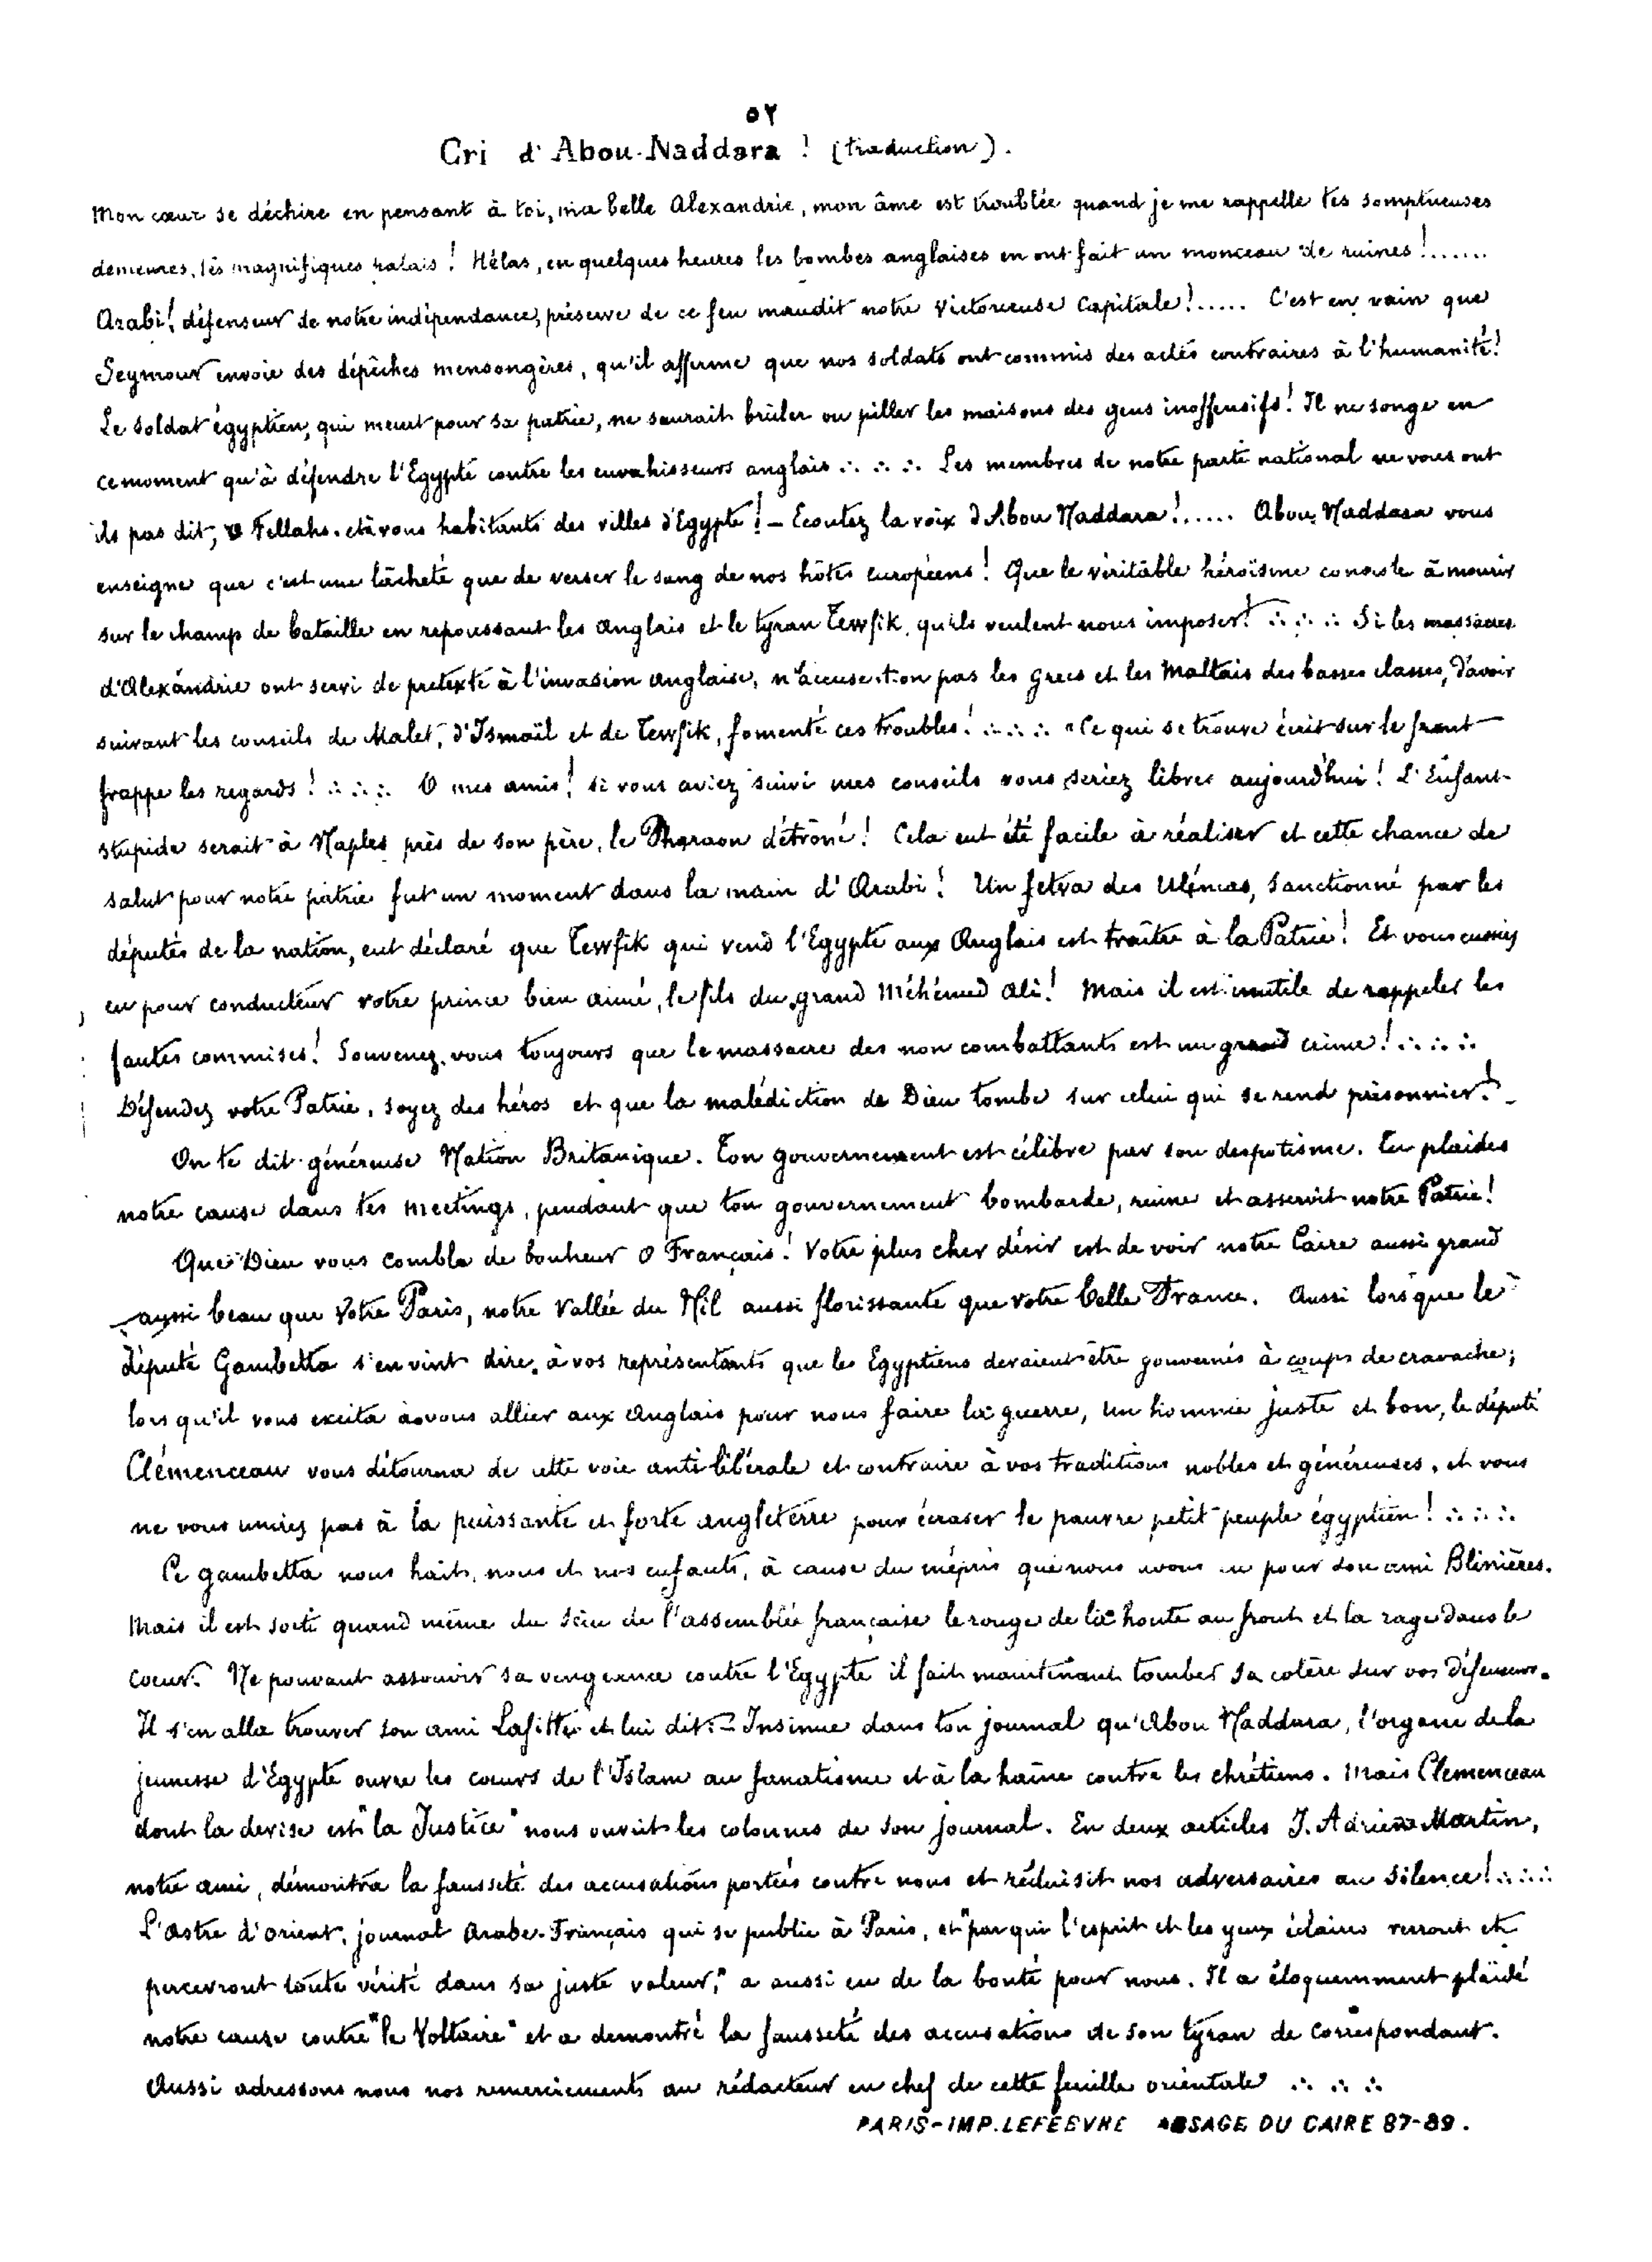 ٥٢
Cri d'Abou-Naddara ! (traduction).
Mon cœur se déchire en pensant à toi, ma belle Alexandrie, mon âme est troublée quand je me rappelle tes somptueuses
demeures, tes magnifiques palais ! Hélas, en quelques heures les bombes anglaises en ont fait un monceau de ruines !......
Arabi ! défenseur de notre indépendance, préserve de ce feu maudit notre victorieuse Capitale !..... C'est en vain que
Seymour envoie des dépêches mensongères, qu'il affirme que nos soldats ont commis des actes contraires à l'humanité !
Le soldat égyptien, qui meurt pour sa patrie, ne saurait brûler ou piller les maisons des gens inoffensifs ! Il ne songe en
ce moment qu'à défendre l'Egypte contre les envahisseurs anglais ∴ ∴ ∴ Les membres de notre parti national ne vous ont
ils pas dit, o Fellahs. et à vous habitants des villes d'Egypte ! — Ecoutez la voix d'Abou Naddara !..... Abou Naddara vous
enseigne que c'est une lâcheté que de verser le sang de nos hôtes européens ! Que le véritable héroïsme consiste à mourir
sur le champ de bataille en repoussant les Anglais et le tyran Tewfik, qu'ils veulent nous imposer ! ∴ ∴ ∴ Si les massacres
d'Alexandrie ont servi de prétexte à l'invasion anglaise, n'accuse-t-on pas les Grecs et les Maltais des basses classes, d'avoir
suivant les conseils de Malet, d'Ismaïl et de Tewfik, fomenté ces troubles ! ∴ ∴ ∴ "Ce qui se trouve écrit sur le front
frappe les regards ! ∴ ∴ ∴ O mes amis ! si vous aviez suivi mes conseils vous seriez libres aujourd'hui ! L'Enfant
stupide serait à Naples près de son père, le Pharaon détrôné ! Cela eut été facile à réaliser et cette chance de
salut pour notre patrie fut un moment dans la main d'Arabi ! Un fetva des Ulémas, sanctionné par les
députés de la nation, eut déclaré que Tewfik qui vend l'Egypte aux Anglais est traître à la Patrie ! Et vous eussiez
eu pour conducteur votre prince bien aimé, le fils du grand Méhémed Ali ! Mais il est inutile de rappeler les
fautes commises ! Souvenez-vous toujours que le massacre des non combattants est un grand crime ! ∴ ∴ ∴
Défendez votre Patrie, soyez des héros et que la malédiction de Dieu tombe sur celui qui se rend prisonnier ! _
On te dit généreuse Nation Britanique. Ton gouvernement est célèbre par son despotisme. Tu plaides
notre cause dans tes meetings, pendant que ton gouvernement bombarde, ruine et asservit notre Patrie !
Que Dieu vous comble de bonheur O Français ! Votre plus cher désir est de voir notre Caire aussi grand
aussi beau que Votre Paris, notre Vallée du Nil aussi florissante que votre belle France. Aussi lorsque le
député Gambetta s'en vint dire à vos représentants que les Egyptiens devaient être gouvernés à coups de cravache ;
lorsqu'il vous excita à vous allier aux Anglais pour nous faire la guerre, un homme juste et bon, le député
Clémenceau vous détourna de cette voie anti libérale et contraire à vos traditions nobles et généreuses, et vous
ne vous unires pas à la puissante et forte angleterre pour écraser le pauvre petit peuple égyptien ! ∴ ∴ ∴
Ce gambetta nous hait, nous et nos enfants, à cause du mépris que nous avons eu pour son ami Blinières.
Mais il est sorti quand même du sein de l'assemblée française le rouge de la honte au front et la rage dans le
cœur. Ne pouvant assouvir sa vengeance contre l'Egypte il fait maintenant tomber sa colère sur vos défenseurs.
Il s'en alla trouver son ami Lafitte et lui dit : — Insinue dans ton journal qu'Abou Naddara, l'organe de la
jeunesse d'Egypte ouvre les cœurs de l'Islam au fanatisme et à la haine contre les chrétiens. Mais Clemenceau
dont la devise est "la Justice" nous ouvrit les colonnes de son journal. En deux articles J. Adrien Martin,
notre ami, démontra la fausseté des accusations portées contre nous et réduisit nos adversaires au silence ! ∴ ∴ ∴
L'Astre d'orient, journal Arabe-Français qui se publie à Paris, et "par qui l'esprit et les yeux éclairés verront et
percevront toute vérité dans sa juste valeur," a aussi eu de la bonté pour nous. Il a éloquemment plaidé
notre cause contre "le Voltaire" et a demontré la fausseté des accusations de son tyran de correspondant.
Aussi adressons nous nos remerciements au rédacteur en chef de cette feuille orientale ∴ ∴ ∴
PARIS-IMP. LEFEBVRE PASSAGE DU CAIRE 87-89.